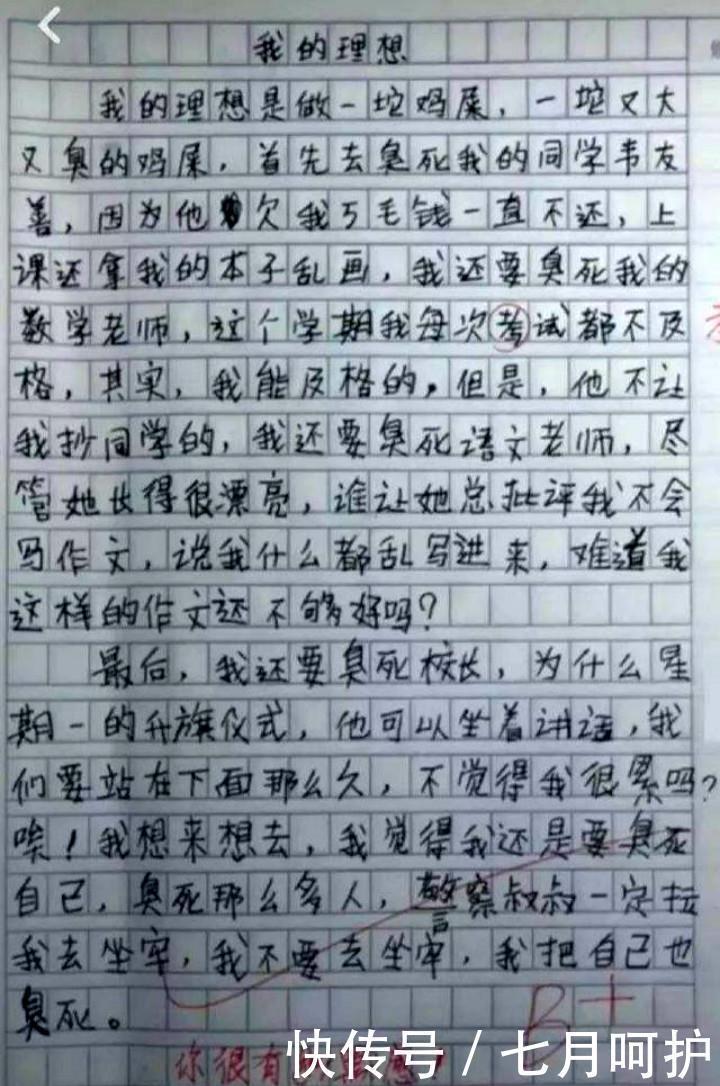 我的理想
我的理想是做一坨鸡屎，一坨又大
又臭的鸡屎，首先去臭死我的同学韦友
善，因为他欠我5毛钱一直不还，上
课还拿我的本子乱画，我还要臭死我的
数学老师，这个学期我每次考试都不及
格，其实，我能及格的，但是，他不让
我抄同学的，我还要臭死语文老师，尽
管她长得很漂亮，谁让她总批评我不会
写作文，说我什么都乱写进来，难道我
这样的作文还不够好吗？
最后，我还要臭死校长，为什么星
期一的升旗仪式，他可以坐着讲话，我
们要站在下面那么久，不觉得我很累吗？
唉！我想来想去，我觉得我还是要臭死
自己，臭死那么多人，警察叔叔一定抓
我去坐牢，我不要去坐牢，我把自己也
臭死。
B+
你很有
快传号／七月呵护